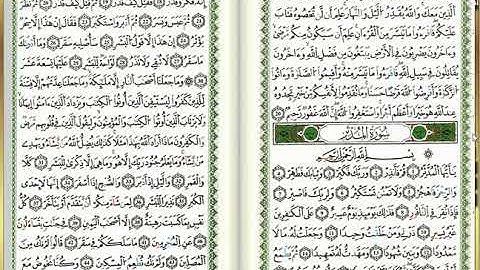 ٱلَّذِينَ مَعَكَ وَٱللَّهُ يُقَدِّرُ ٱلَّيْلَ وَٱلنَّهَارَ عَلِمَ أَن لَّن تُحْصُوهُ فَتَابَ
عَلَيْكُمْ فَٱقْرَءُوا۟ مَا تَيَسَّرَ مِنَ ٱلْقُرْءَانِ عَلِمَ أَن سَيَكُونُ مِنكُم مَّرْضَىٰ
وَءَاخَرُونَ يَضْرِبُونَ فِى ٱلْأَرْضِ يَبْتَغُونَ مِن فَضْلِ ٱللَّهِ وَءَاخَرُونَ
يُقَٰتِلُونَ فِى سَبِيلِ ٱللَّهِ فَٱقْرَءُوا۟ مَا تَيَسَّرَ مِنْهُ وَأَقِيمُوا۟ ٱلصَّلَوٰةَ وَءَاتُوا۟
ٱلزَّكَوٰةَ وَأَقْرِضُوا۟ ٱللَّهَ قَرْضًا حَسَنًا وَمَا تُقَدِّمُوا۟ لِأَنفُسِكُم مِّنْ خَيْرٍ تَجِدُوهُ
عِندَ ٱللَّهِ هُوَ خَيْرًا وَأَعْظَمَ أَجْرًا وَٱسْتَغْفِرُوا۟ ٱللَّهَ إِنَّ ٱللَّهَ غَفُورٌ رَّحِيمٌ ٢٠
سُورَةُ المُدَّثِّر
بِسْمِ ٱللَّهِ ٱلرَّحْمَٰنِ ٱلرَّحِيمِ
يَٰٓأَيُّهَا ٱلْمُدَّثِّرُ ١ قُمْ فَأَنذِرْ ٢ وَرَبَّكَ فَكَبِّرْ ٣ وَثِيَابَكَ فَطَهِّرْ ٤
وَٱلرُّجْزَ فَٱهْجُرْ ٥ وَلَا تَمْنُن تَسْتَكْثِرُ ٦ وَلِرَبِّكَ فَٱصْبِرْ ٧
فَإِذَا نُقِرَ فِى ٱلنَّاقُورِ ٨ فَذَٰلِكَ يَوْمَئِذٍ يَوْمٌ عَسِيرٌ ٩ عَلَى ٱلْكَٰفِرِينَ
غَيْرُ يَسِيرٍ ١٠ ذَرْنِى وَمَنْ خَلَقْتُ وَحِيدًا ١١ وَجَعَلْتُ لَهُۥ مَالًا
مَّمْدُودًا ١٢ وَبَنِينَ شُهُودًا ١٣ وَمَهَّدتُّ لَهُۥ تَمْهِيدًا ١٤
إِنَّهُۥ فَكَّرَ وَقَدَّرَ ١٨ فَقُتِلَ كَيْفَ قَدَّرَ ١٩ ثُمَّ قُتِلَ كَيْفَ قَدَّرَ
٢٠ ثُمَّ نَظَرَ ٢١ ثُمَّ عَبَسَ وَبَسَرَ ٢٢ ثُمَّ أَدْبَرَ وَٱسْتَكْبَرَ ٢٣ فَقَالَ إِنْ هَٰذَآ إِلَّا سِحْرٌ
يُؤْثَرُ ٢٤ إِنْ هَٰذَآ إِلَّا قَوْلُ ٱلْبَشَرِ ٢٥ سَأُصْلِيهِ سَقَرَ ٢٦ وَمَآ أَدْرَىٰكَ
مَا سَقَرُ ٢٧ لَا تُبْقِى وَلَا تَذَرُ ٢٨ لَوَّاحَةٌ لِّلْبَشَرِ ٢٩ عَلَيْهَا تِسْعَةَ عَشَرَ
٣٠ وَمَا جَعَلْنَآ أَصْحَٰبَ ٱلنَّارِ إِلَّا مَلَٰٓئِكَةً وَمَا جَعَلْنَا عِدَّتَهُمْ إِلَّا فِتْنَةً
لِّلَّذِينَ كَفَرُوا۟ لِيَسْتَيْقِنَ ٱلَّذِينَ أُوتُوا۟ ٱلْكِتَٰبَ وَيَزْدَادَ ٱلَّذِينَ ءَامَنُوٓا۟ إِيمَٰنًا
وَلَا يَرْتَابَ ٱلَّذِينَ أُوتُوا۟ ٱلْكِتَٰبَ وَٱلْمُؤْمِنُونَ وَلِيَقُولَ ٱلَّذِينَ فِى قُلُوبِهِم مَّرَضٌ
وَٱلْكَٰفِرُونَ مَاذَآ أَرَادَ ٱللَّهُ بِهَٰذَا مَثَلًا كَذَٰلِكَ يُضِلُّ ٱللَّهُ مَن يَشَآءُ وَيَهْدِى
مَن يَشَآءُ وَمَا يَعْلَمُ جُنُودَ رَبِّكَ إِلَّا هُوَ وَمَا هِىَ إِلَّا ذِكْرَىٰ لِلْبَشَرِ ٣١ كَلَّا
وَٱلْقَمَرِ ٣٢ وَٱلَّيْلِ إِذْ أَدْبَرَ ٣٣ وَٱلصُّبْحِ إِذَآ أَسْفَرَ ٣٤ إِنَّهَا لَإِحْدَى
ٱلْكُبَرِ ٣٥ نَذِيرًا لِّلْبَشَرِ ٣٦ لِمَن شَآءَ مِنكُمْ أَن يَتَقَدَّمَ أَوْ يَتَأَخَّرَ ٣٧ كُلُّ
نَفْسٍۭ بِمَا كَسَبَتْ رَهِينَةٌ ٣٨ إِلَّآ أَصْحَٰبَ ٱلْيَمِينِ ٣٩ فِى جَنَّٰتٍ يَتَسَآءَلُونَ
٤٠ عَنِ ٱلْمُجْرِمِينَ ٤١ مَا سَلَكَكُمْ فِى سَقَرَ ٤٢ قَالُوا۟ لَمْ نَكُ مِنَ
ٱلْمُصَلِّينَ ٤٣ وَلَمْ نَكُ نُطْعِمُ ٱلْمِسْكِينَ ٤٤ وَكُنَّا نَخُوضُ مَعَ